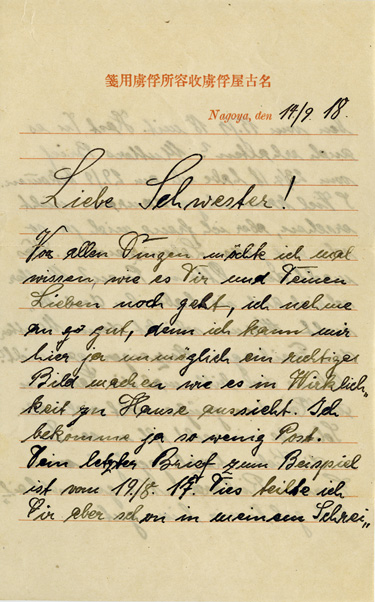 名古屋俘虜収容所俘虜用箋
Nagoya, den 14/9. 18.
Liebe Schwester!
Vor allen Dingen möchte ich mal
wissen, wie es Dir und Deinen
Lieben noch geht, ich nehme
an go gut, denn ich kann mir
hier ja unmöglich ein richtiges
Bild machen wie es in Wirklich„
keit zu Hause aussieht. Ich
bekomme ja so wenig Post.
Dein letzter Brief zum Beispiel
ist vom 19/8. 17. Dies teilte ich
Dir aber schon in meinem Schrei„